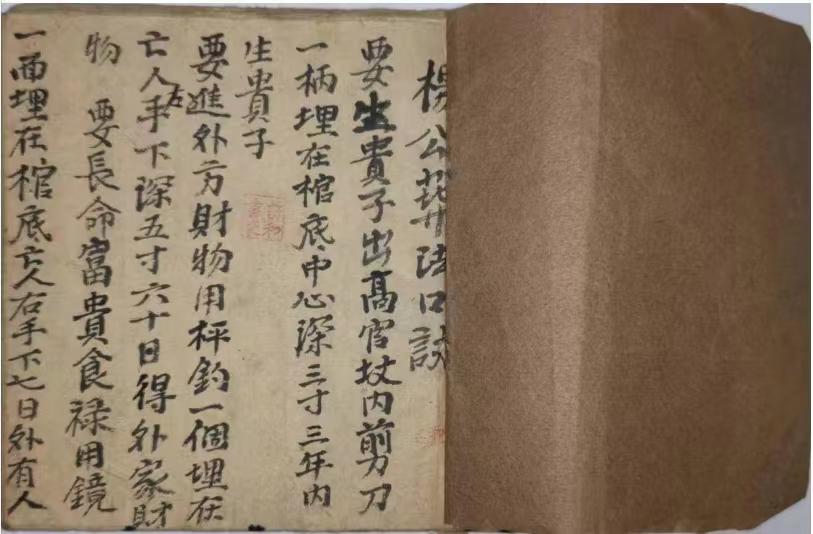 楊公葬法口訣
要生貴子出高官坟内剪刀
一柄埋在棺底中心深三寸三年内
生貴子
要進外方財物用枰鈎一個埋在
亡人左手下深五寸六十日得外家財
物 要長命富貴食禄用鏡
一面埋在棺底亡人右手下七日外有人